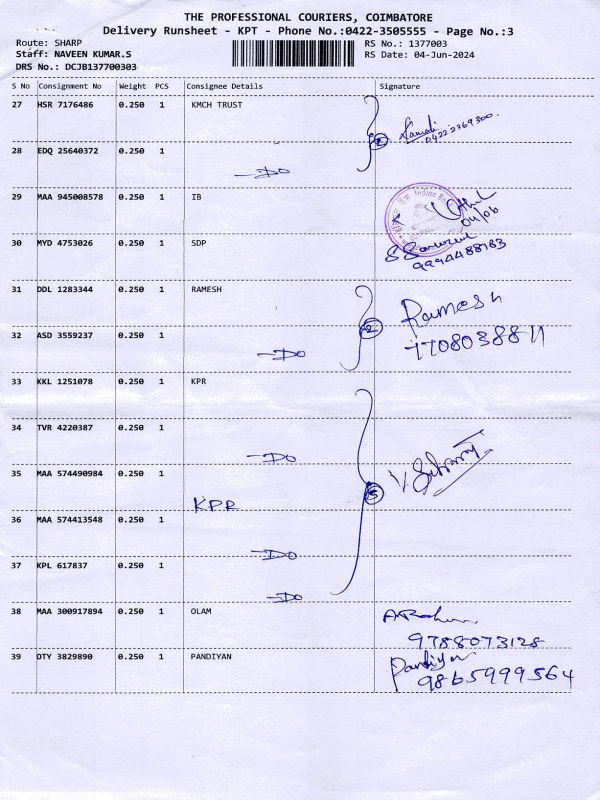 THE PROFESSIONAL COURIERS, COIMBATORE
Delivery Runsheet - KPT - Phone No.:0422-3505555 - Page No.:3
Route: SHARP RS No.: 1377003
Staff: NAVEEN KUMAR.S RS Date: 04-Jun-2024
DRS No.: DCJB137700303
S No Consignment No Weight PCS Consignee Details Signature
27 HSR 7176486 0.250 1 KMCH TRUST
2 04222769300
28 EDQ 25640372 0.250 1
-DO
29 MAA 945008578 0.250 1 IB
Indian
04/06
30 MYD 4753026 0.250 1 SDP
9994488183
31 DDL 1283344 0.250 1 RAMESH
Ramesh
32 ASD 3559237 0.250 1
2
-DO
33 KKL 1251078 0.250 1 KPR
34 TVR 4220387 0.250 1
-DO
35 MAA 574490984 0.250 1
5
KPR
36 MAA 574413548 0.250 1
-DO
37 KPL 617837 0.250 1
-DO
38 MAA 300917894 0.250 1 OLAM
9788073128
39 DTY 3829890 0.250 1 PANDIYAN
Pandiyan
9865999564